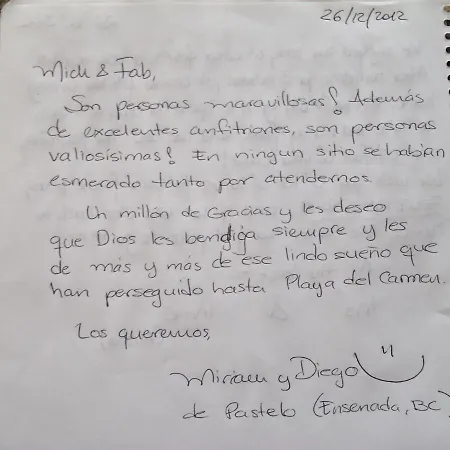 26/12/2012
Mich & Fab,
Son personas maravillosas! Además
de excelentes anfitriones, son personas
valiosísimas! En ningun sitio se habían
esmerado tanto por atendernos.
Un millón de Gracias y les deseo
que Dios les bendiga siempre y les
de más y más de ese lindo sueño que
han perseguido hasta Playa del Carmen.
Los queremos,
Miriam y Diego
de Pastelo (Ensenada, BC)